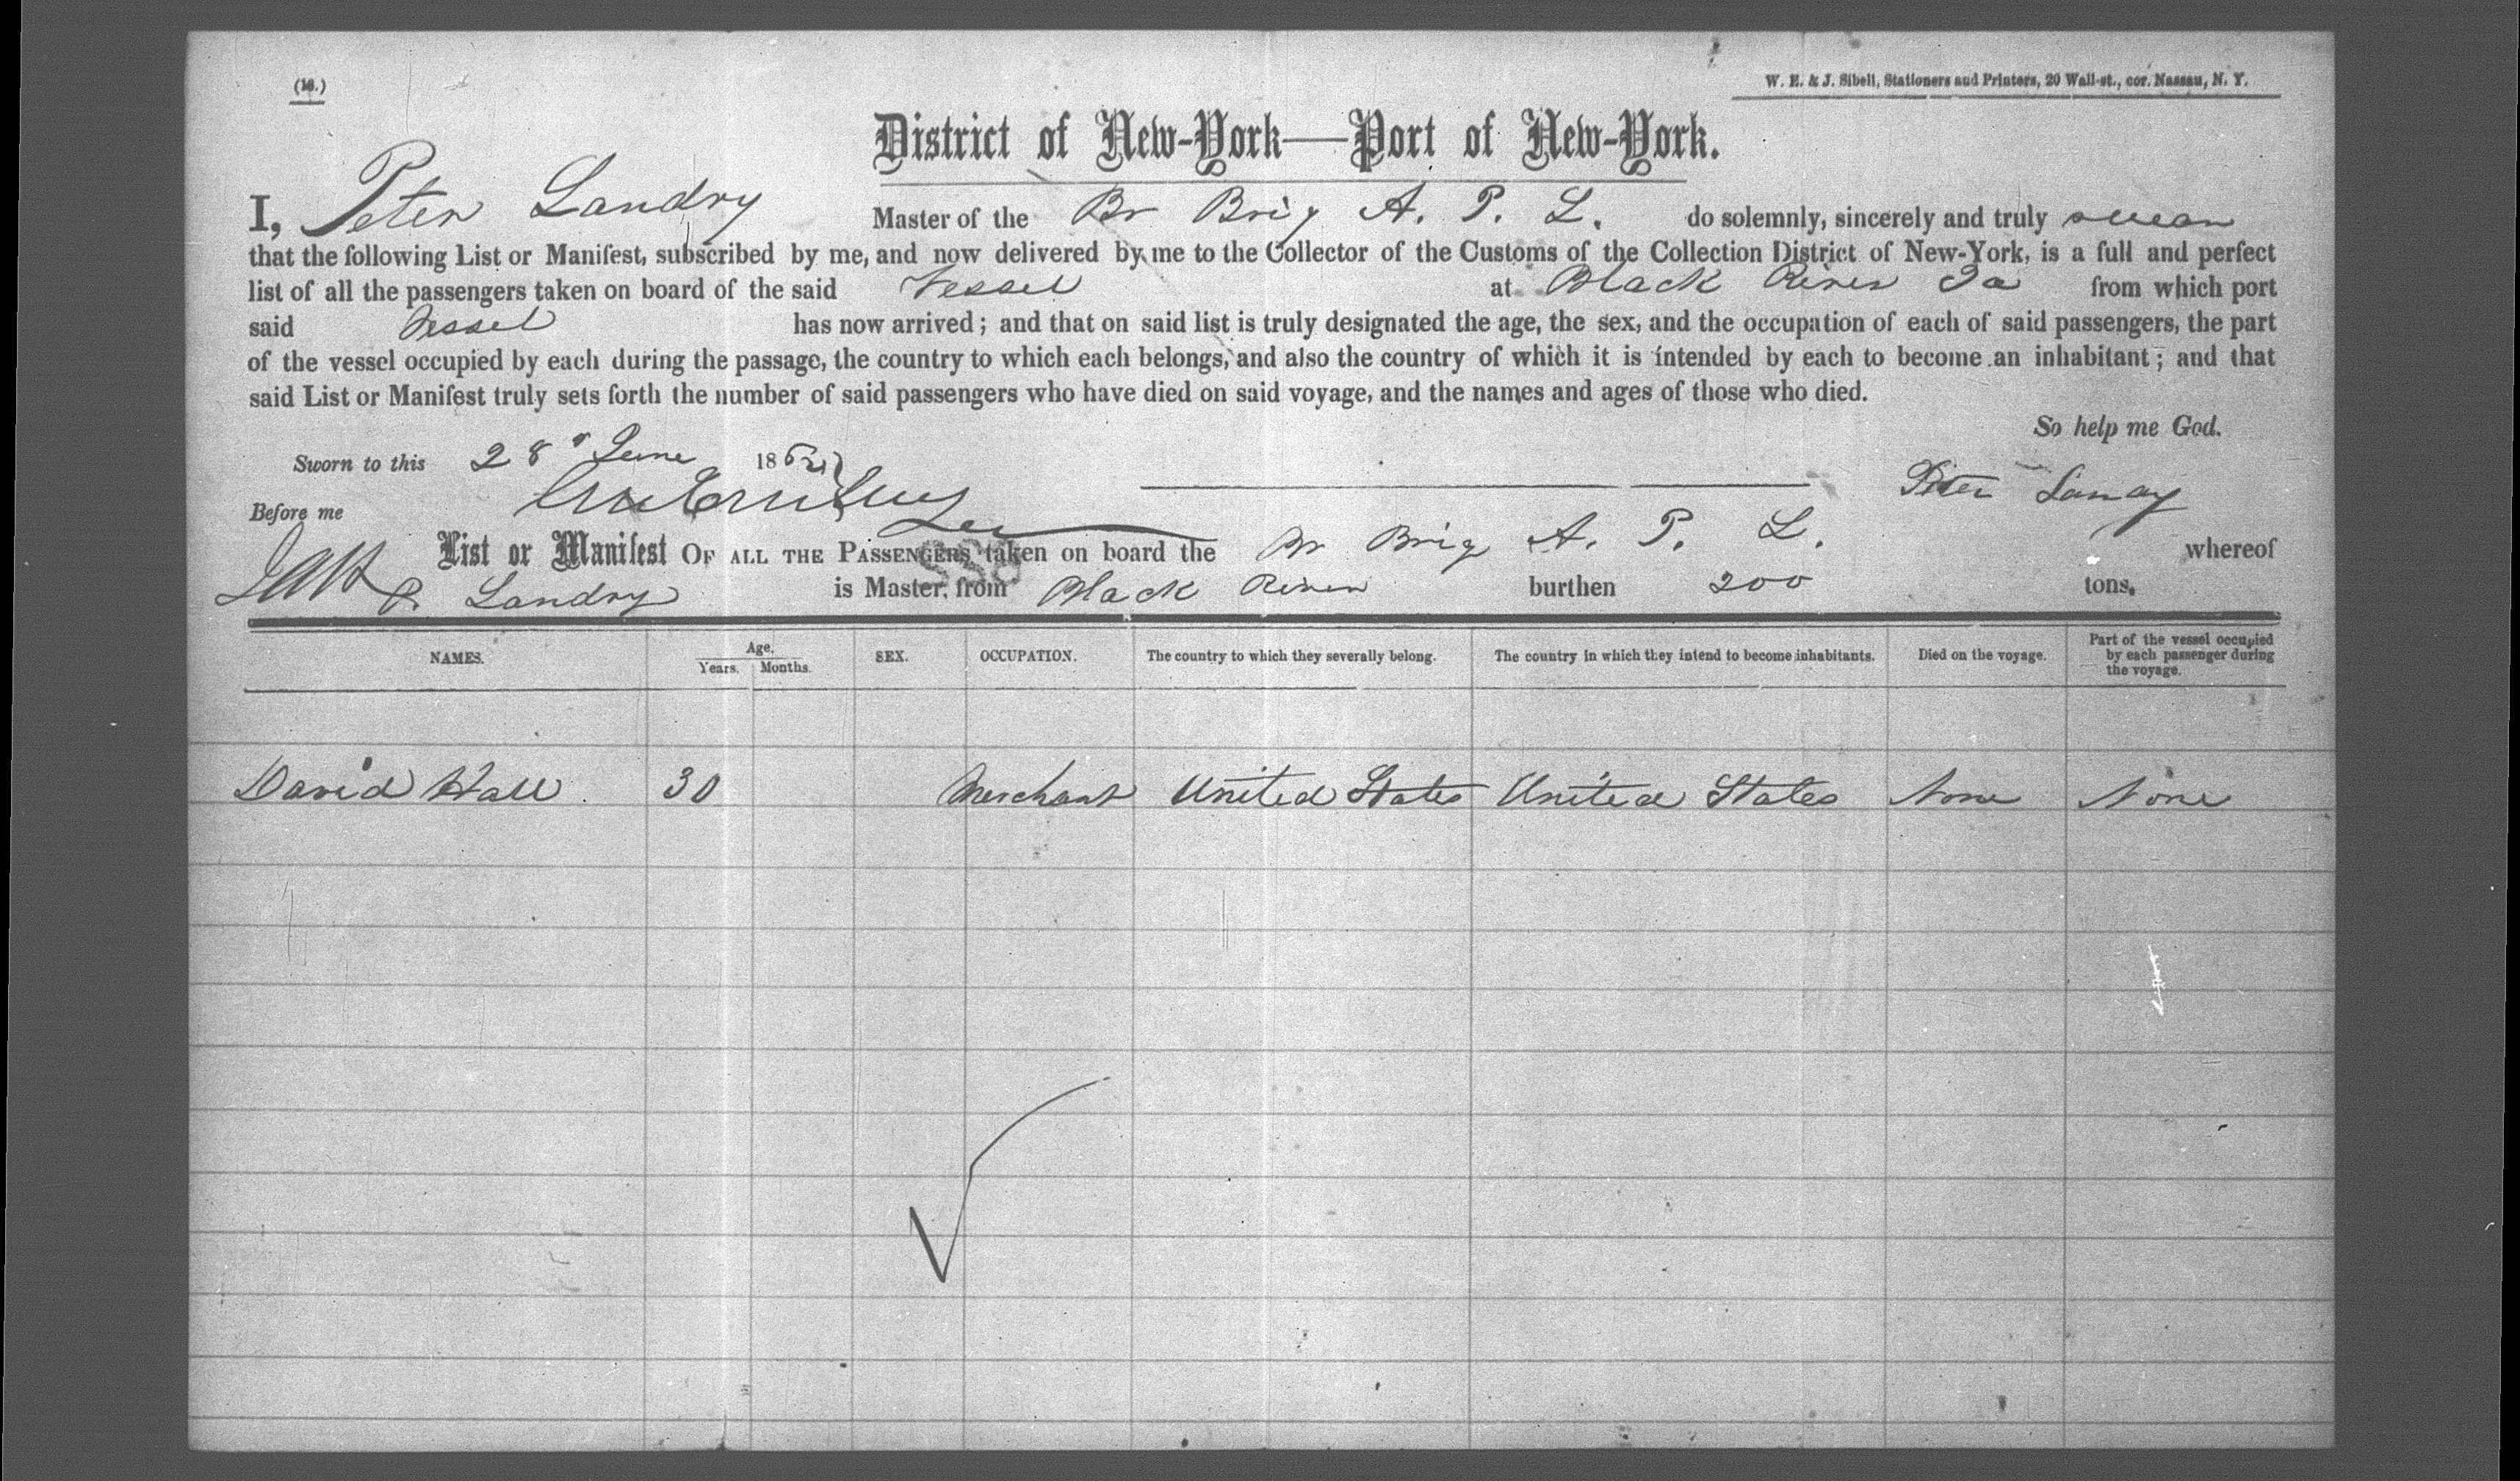 (18.)
W. E. & J. Sibell, Stationers and Printers, 20 Wall-st., cor. Nassau, N. Y.
District of New-York—Port of New-York.
I, Peter Landry Master of the Br Brig A. P. L. do solemnly, sincerely and truly swear
that the following List or Manifest, subscribed by me, and now delivered by me to the Collector of the Customs of the Collection District of New-York, is a full and perfect
list of all the passengers taken on board of the said Vessel at Black River Ja from which port
said Vessel has now arrived; and that on said list is truly designated the age, the sex, and the occupation of each of said passengers, the part
of the vessel occupied by each during the passage, the country to which each belongs, and also the country of which it is intended by each to become an inhabitant; and that
said List or Manifest truly sets forth the number of said passengers who have died on said voyage, and the names and ages of those who died.
So help me God.
Sworn to this 28 June 186
Before me
Peter Landry
List or Manifest OF ALL THE PASSENGERS taken on board the Br Brig A. P. L. whereof
P. Landry is Master, from Black River burthen 200 tons.
NAMES. Age. Years. Months. SEX. OCCUPATION. The country to which they severally belong. The country in which they intend to become inhabitants. Died on the voyage. Part of the vessel occupied by each passenger during the voyage.
David Hall 30 Merchant United States United States None None